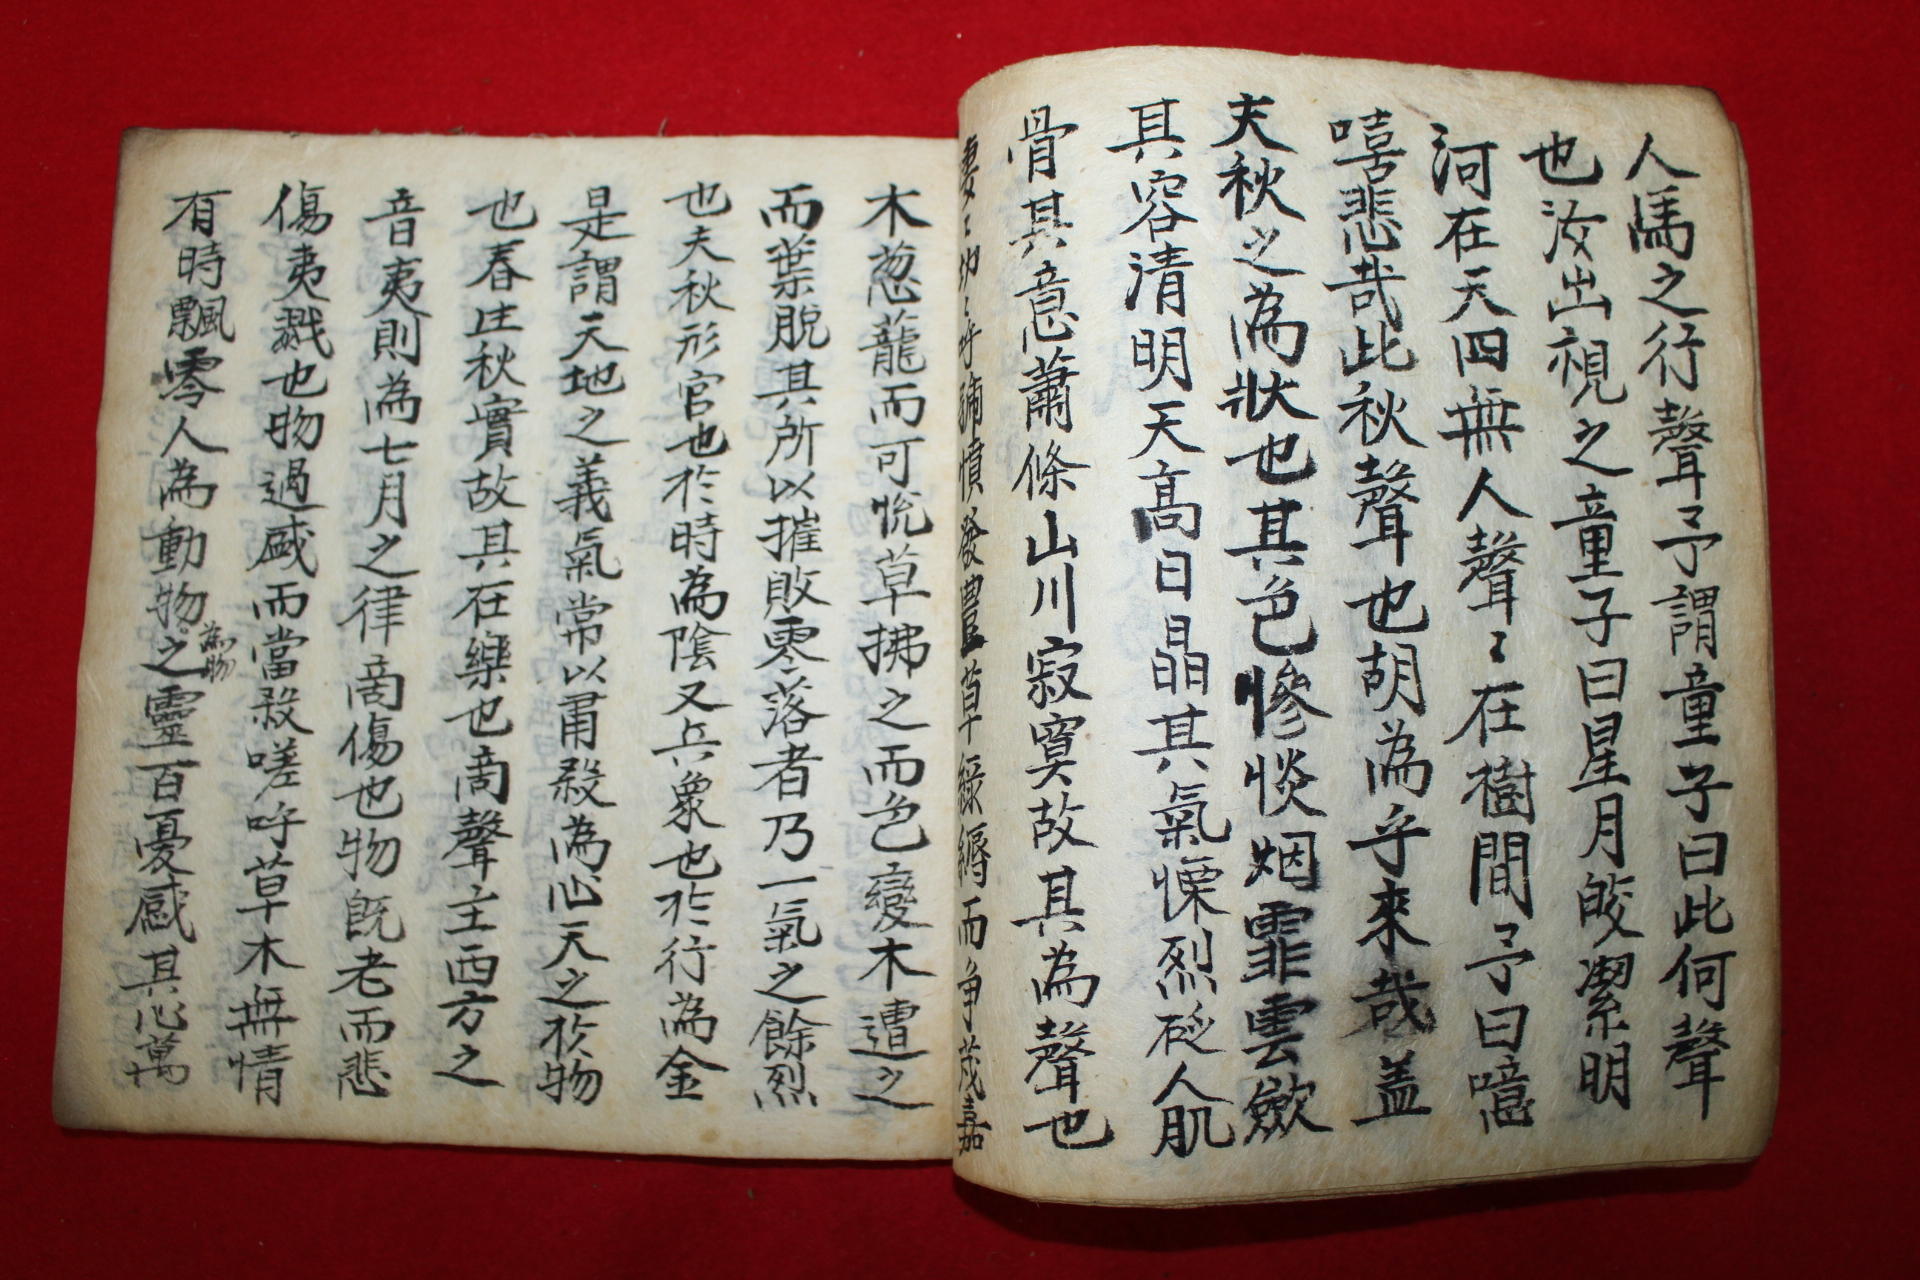 人馬之行聲予謂童子曰此何聲
也汝出視之童子曰星月皎潔明
河在天四無人聲〻在樹間予曰噫
嘻悲哉此秋聲也胡為乎來哉盖
夫秋之為狀也其色慘惔烟霏雲斂
其容清明天高日晶其氣慄烈砭人肌
骨其意蕭條山川寂寞故其為聲也
凄〻切〻呼號憤發豊草綠縟而争茂嘉
木葱蘢而可悅草拂之而色變木遭之
而葉脫其所以摧敗零落者乃一氣之餘烈
也夫秋形官也於時為陰又兵象也於行為金
是謂天地之義氣常以肅殺為心天之於物
也春生秋實故其在樂也商聲主西方之
音夷則為七月之律商傷也物旣老而悲
傷夷戮也物過盛而當殺嗟呼草木無情
有時飄零人為動物之靈百憂感其心萬
為物